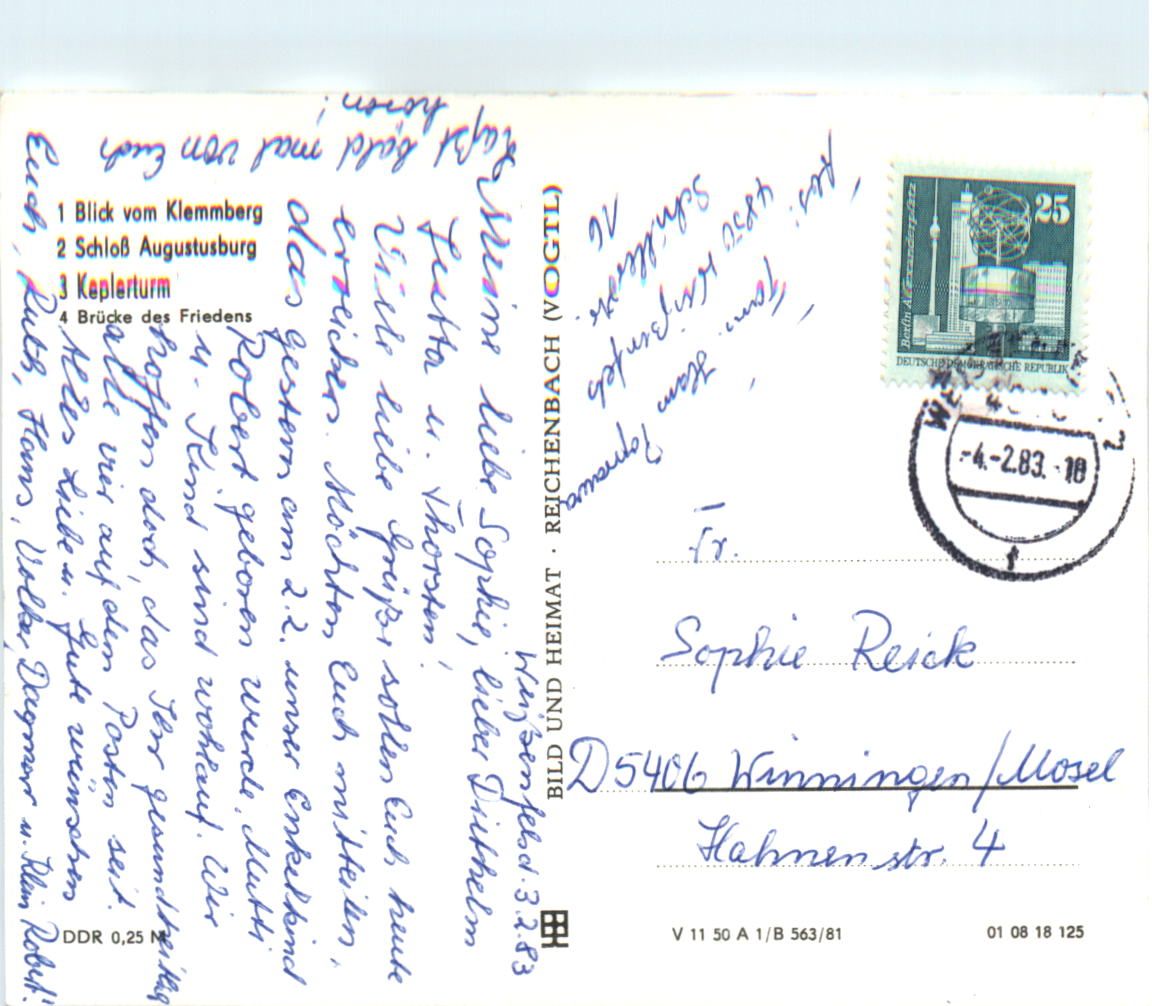 1 Blick vom Klemmberg
2 Schloß Augustusburg
3 Keplerturm
4 Brücke des Friedens
Weißenfels d. 3.2.83
Meine liebe Sophie, lieber Diethelm
Jutta u. Thorsten!
Viele liebe Grüße sollen Euch heute
erreichen. Möchten Euch mitteilen,
das gestern am 2.2. unser Enkelkind
Robert geboren wurde. Mutti
u. Kind sind wohlauf. Wir
hoffen doch, das Ihr gesundheitlich
alle vier auf dem Posten seit.
Alles Liebe u. Gute wünschen
Euch, Ruth, Hans, Volker, Dagmar u. klein Robert!
Laßt bald mal von Euch
hören!
DDR 0,25 M
BILD UND HEIMAT · REICHENBACH (VOGTL)
Abs.
Fam. Hans
4850 Weißenfels
16
25
Berlin Alexanderplatz
DEUTSCHE DEMOKRATISCHE REPUBLIK
-4.-2.83.-18
Fr.
Sophie Reick
D 5406 Winningen/Mosel
Hahnenstr. 4
V 11 50 A 1/B 563/81
01 08 18 125